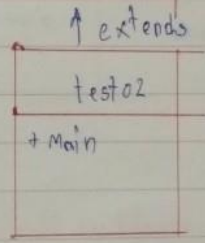 ↑ extends
test02
+ Main